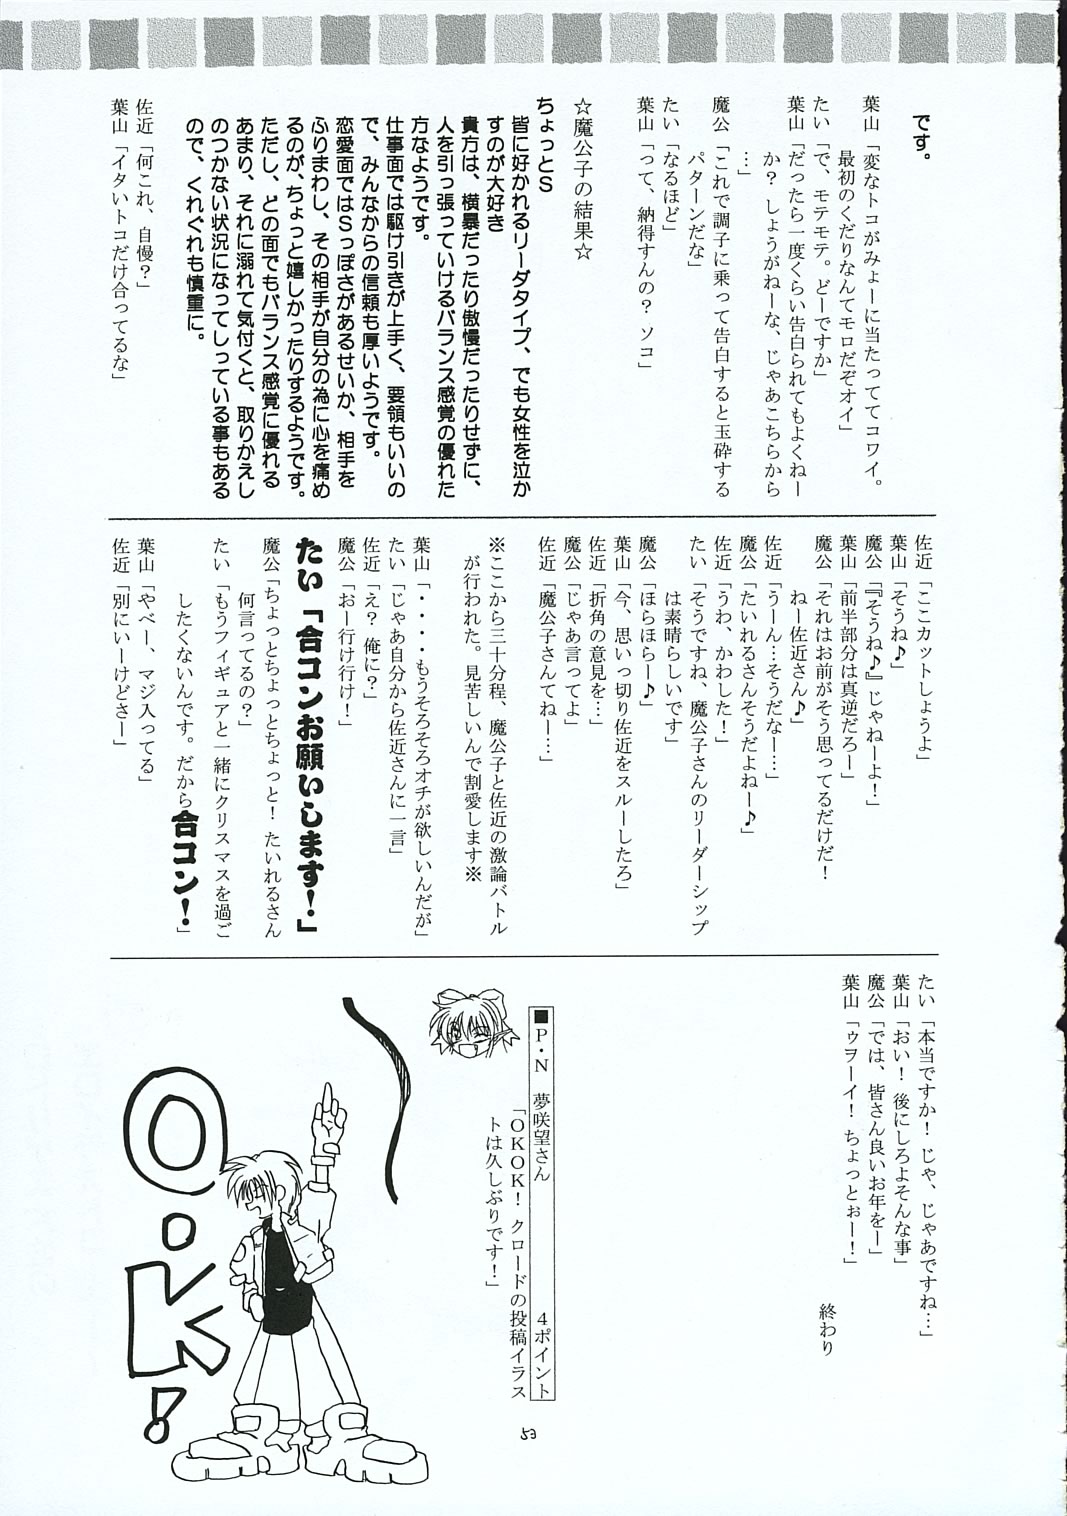 です。
葉山「変なトコがみょーに当たっててコワイ。
最初のくだりなんてモロだぞオイ」
たい「で、モテモテ。どーですか」
葉山「だったら一度くらい告白られてもよくねー
か？しょうがねーな、じゃあこちらから
…」
魔公「これで調子に乗って告白すると玉砕する
パターンだな」
たい「なるほど」
葉山「って、納得すんの？ソコ」
☆魔公子の結果☆
ちょっとS
皆に好かれるリーダタイプ、でも女性を泣か
すのが大好き
貴方は、横暴だったり傲慢だったりせずに、
人を引っ張っていけるバランス感覚の優れた
方なようです。
仕事面では駆け引きが上手く、要領もいいの
で、みんなからの信頼も厚いようです。
恋愛面ではSっぽさがあるせいか、相手を
ふりまわし、その相手が自分の為に心を痛め
るのが、ちょっと嬉しかったりするようです。
ただし、どの面でもバランス感覚に優れる
あまり、それに溺れて気付くと、取りかえし
のつかない状況になってしっている事もある
ので、くれぐれも慎重に。
佐近「何これ、自慢？」
葉山「イタいトコだけ合ってるな」
佐近「ここカットしようよ」
葉山「そうね♪」
魔公『『そうね♪』じゃねーよ！」
葉山「前半部分は真逆だろー」
魔公「それはお前がそう思ってるだけだ！
ねー佐近さん♪」
佐近「うーん…そうだなー…」
魔公「たいれるさんそうだよねー♪」
佐近「うわ、かわした！」
たい「そうですね、魔公子さんのリーダーシップ
は素晴らしいです」
魔公「ほらほらー♪」
葉山「今、思いっ切り佐近をスルーしたろ」
佐近「折角の意見を…」
魔公「じゃあ言ってよ」
佐近「魔公子さんてねー…」
※ここから三十分程、魔公子と佐近の激論バトル
が行われた。見苦しいんで割愛します※
葉山「・・・・もうそろそろオチが欲しいんだが」
たい「じゃあ自分から佐近さんに一言」
佐近「え？俺に？」
魔公「おー行け行け！」
たい「合コンお願いします！」
魔公「ちょっとちょっとちょっと！たいれるさん
何言ってるの？」
たい「もうフィギュアと一緒にクリスマスを過ご
したくないんです。だから合コン！」
葉山「やべー、マジ入ってる」
佐近「別にいーけどさー」
たい「本当ですか！じゃ、じゃあですね…」
葉山「おい！後にしろよそんな事」
魔公「では、皆さん良いお年をー」
葉山「ゥヲーイ！ちょっとぉー！」
終わり
■P・N　夢咲望さん　4ポイント
「OKOK！クロードの投稿イラス
トは久しぶりです！」
O.K!
53